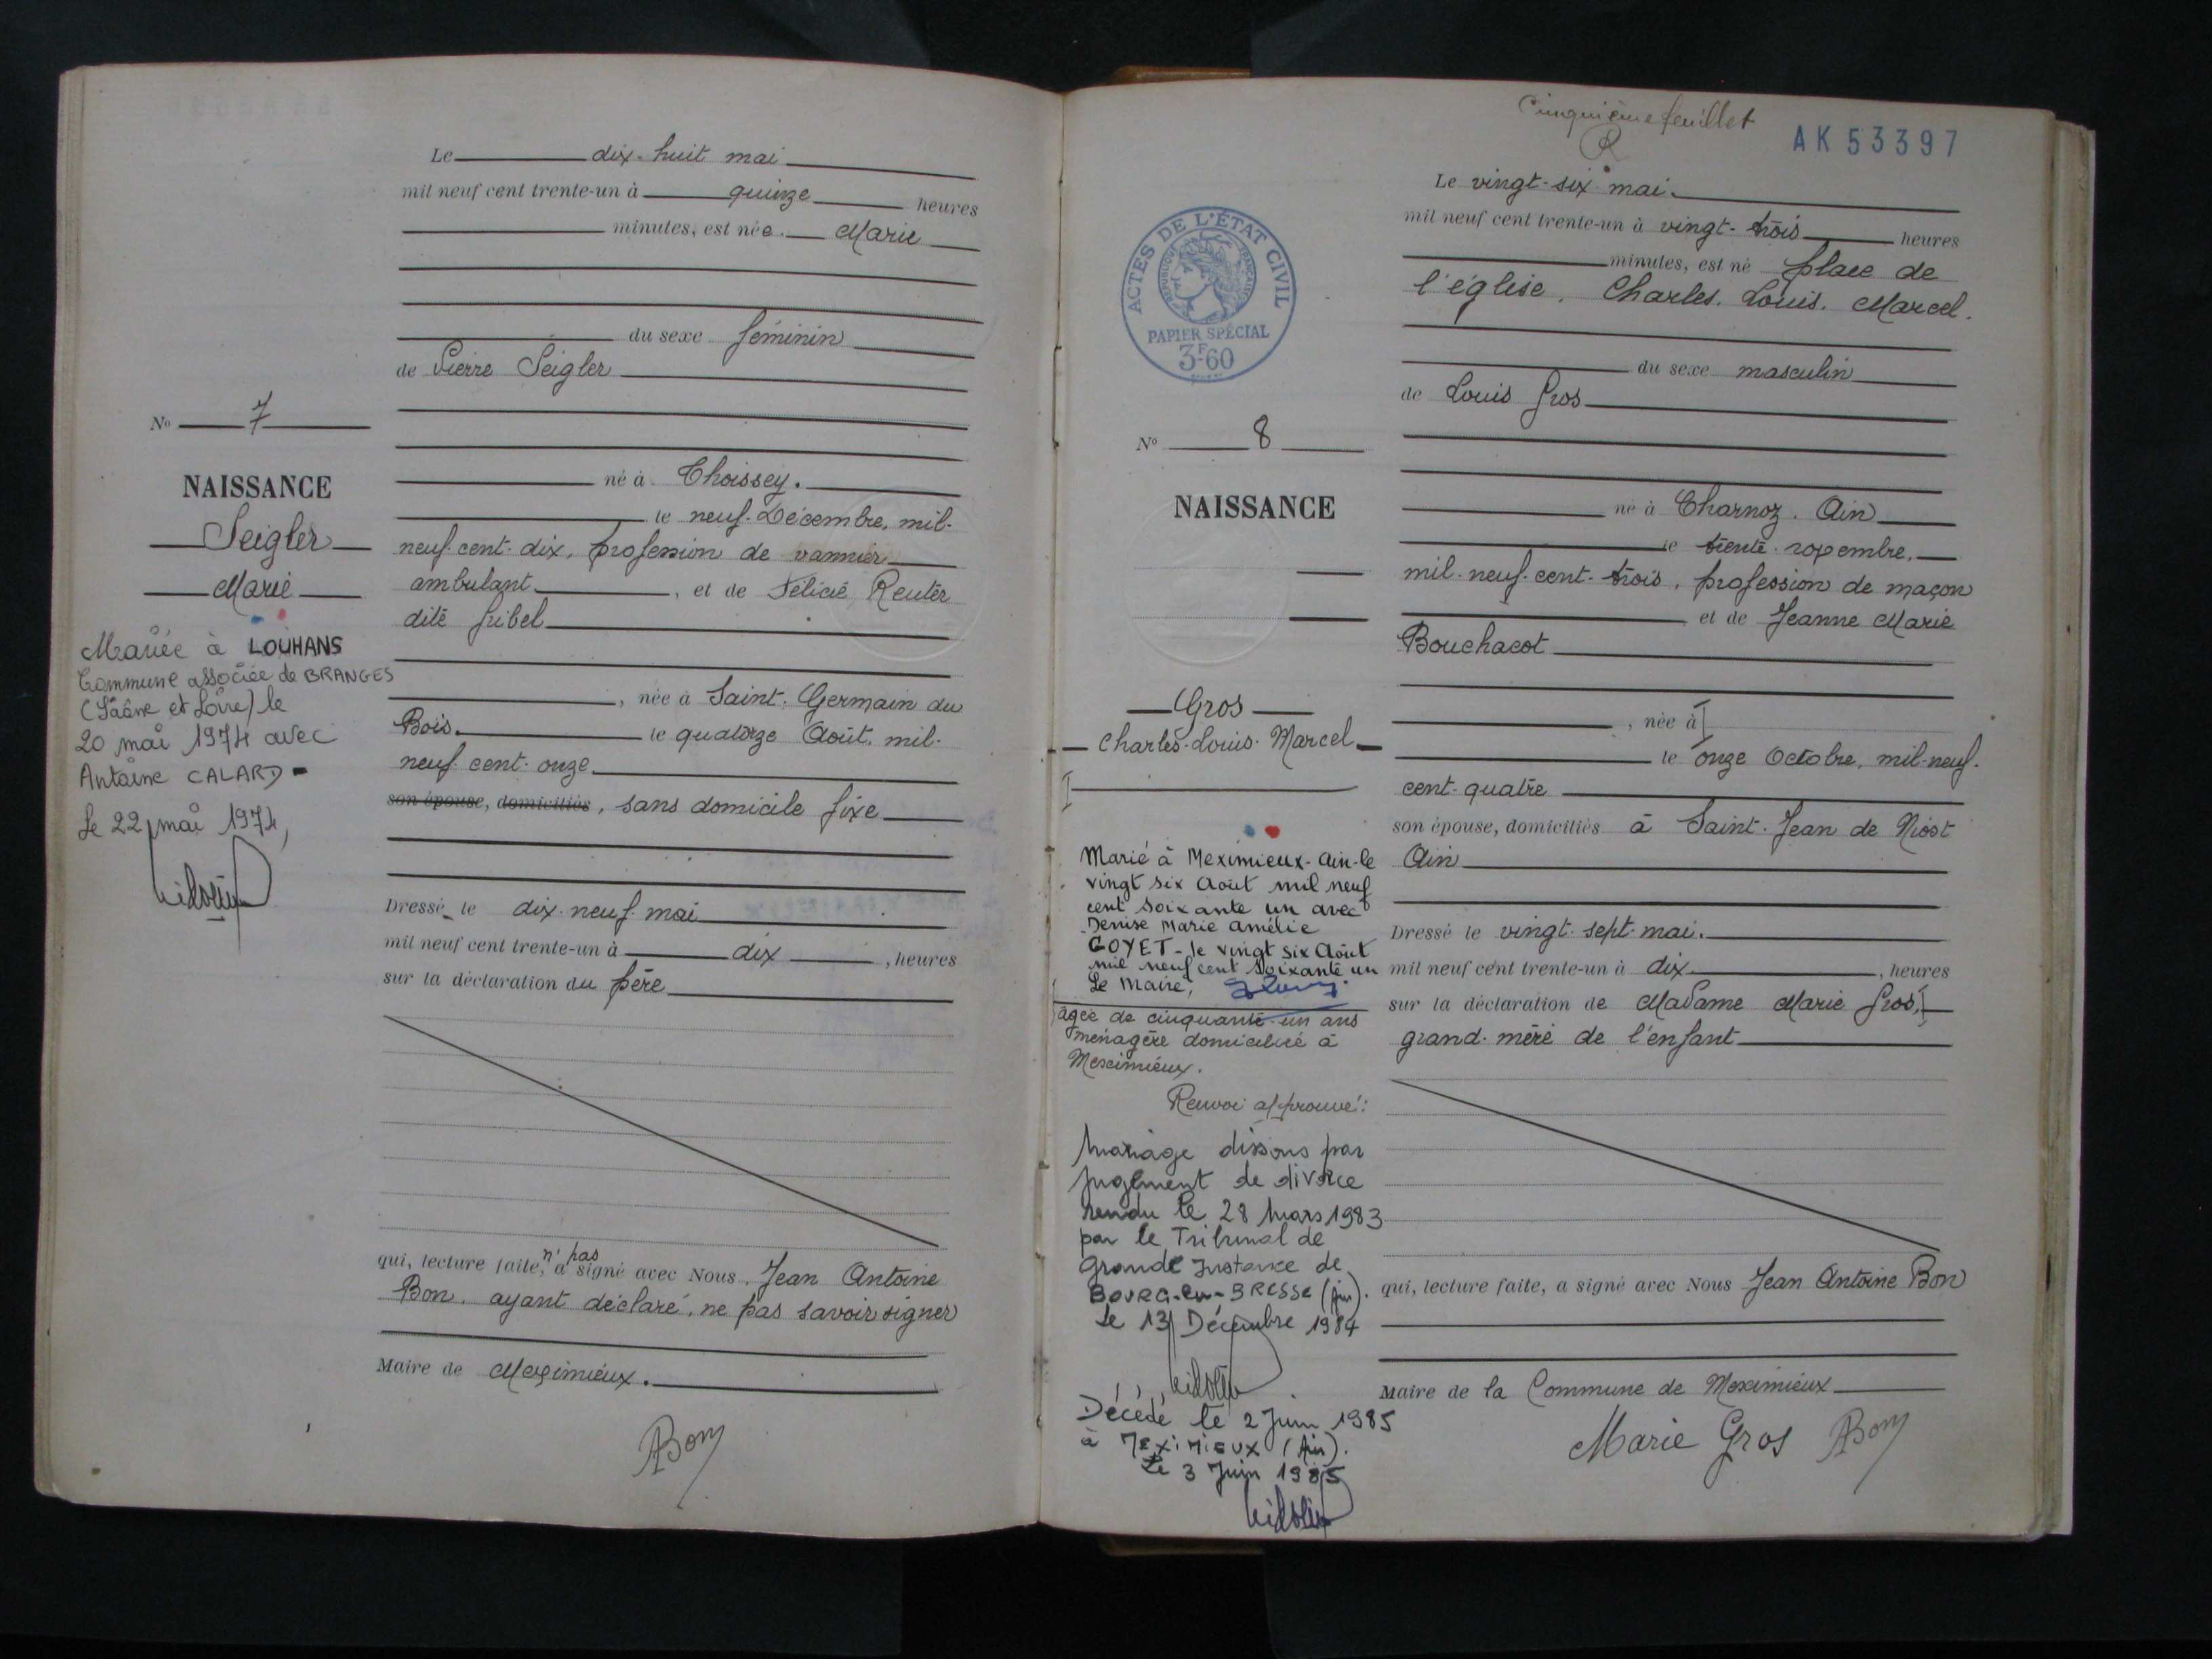 Le dix-huit mai
mil neuf cent trente-un à quinze heures
minutes, est née. Marie
du sexe féminin
de Pierre Seigler
né à Choissey.
le neuf. Décembre, mil-
neuf. cent. dix, profession de vannier
ambulant, et de Félicie Reuter
dite Gribel
, née à Saint. Germain du
Bois. le quatorze Août. mil-
neuf. cent. onze
son épouse, domiciliés, sans domicile fixe
Dressé le dix-neuf mai
mil neuf cent trente-un à dix, heures
sur la déclaration du père
qui, lecture faite, n'a pas signé avec Nous, Jean Antoine
Bon. ayant déclaré, ne pas savoir signer
Maire de Meximieux.
Bon
No 7
NAISSANCE
Seigler
Marie
Mariée à LOUHANS
Commune associée de BRANGES
(Saône et Loire) le
20 mai 1974 avec
Antoine CALARD
Le 22 mai 1974,
Cinquième feuillet
AK 53397
ACTES DE L'ÉTAT CIVIL
RÉPUBLIQUE FRANÇAISE
PAPIER SPÉCIAL
3F60
Le vingt-six mai.
mil neuf cent trente-un à vingt-trois heures
minutes, est né place de
l'église, Charles. Louis. Marcel.
du sexe masculin
de Louis Gros
né à Charnoz. Ain
le trente. novembre,
mil-neuf-cent-trois, profession de maçon
et de Jeanne Marie
Bouchacot
, née à
le onze Octobre, mil-neuf-
cent-quatre
son épouse, domiciliés à Saint-Jean de Niost
Ain
Dressé le vingt-sept-mai.
mil neuf cent trente-un à dix, heures
sur la déclaration de Madame Marie Gros,
grand-mère de l'enfant
qui, lecture faite, a signé avec Nous Jean Antoine Bon
Maire de la Commune de Meximieux
Marie Gros Bon
No 8
NAISSANCE
Gros
Charles-Louis-Marcel
Marié à Meximieux-Ain-le
vingt six Août mil neuf
cent soixante un avec
Denise Marie Amélie
GOYET - le vingt six Août
mil neuf cent soixante un
Le Maire,
âgée de cinquante-un ans
ménagère domiciliée à
Meximieux.
Renvoi approuvé:
Mariage dissous par
jugement de divorce
rendu le 28 Mars 1983
par le Tribunal de
Grande Instance de
BOURG-en-BRESSE (Ain).
Le 13 Décembre 1984
Décédé le 2 Juin 1985
à MEXIMIEUX (Ain).
Le 3 Juin 1985